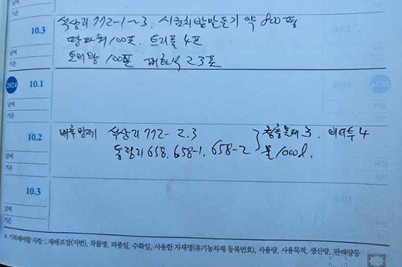 10.3 옥상리 772-1~3. 시금치밭만들기 약 800평
땅파워 100포. 트리플 4포
토미랑 100포 패화석 23포
날씨
기온
2024 10.1
날씨
기온
10.2 배추방제 옥상리 772-2.3
658, 658-1, 658-2 물/000ℓ.
날씨
기온
10.3
날씨
기온
※ 기록해야할 사항 : 재배포장(지번), 작물명, 파종일, 수확일, 사용한 자재명(유기농자재 등록번호), 사용량, 사용목적, 생산량, 판매량 등